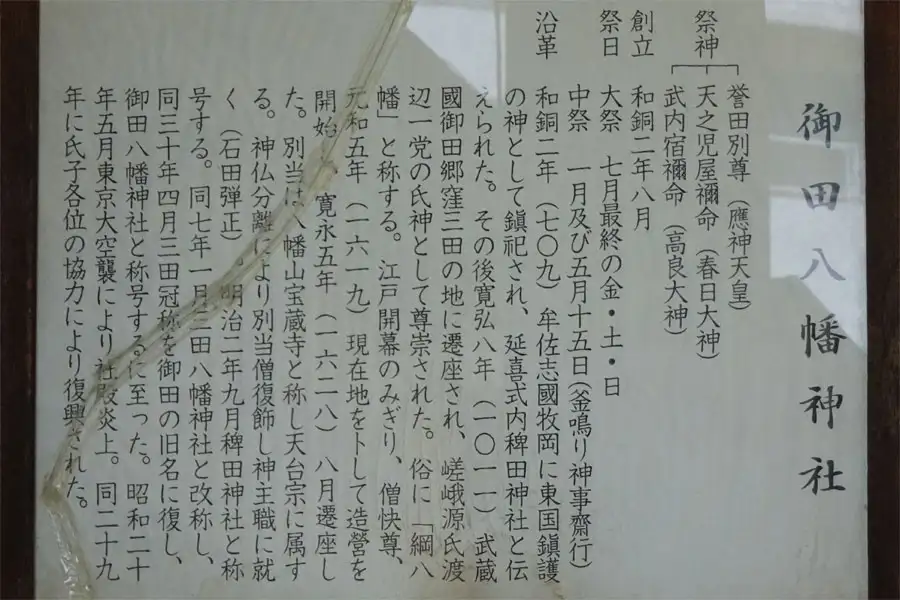 御田八幡神社
祭神
誉田別尊（應神天皇）
天之児屋禰命（春日大神）
武内宿禰命（高良大神）
創立 和銅二年八月
祭日 大祭 七月最終の金・土・日
中祭 一月及び五月十五日(釜鳴り神事齋行)
沿革 和銅二年（七〇九）牟佐志國牧岡に東国鎮護
の神として鎮祀され、延喜式内稗田神社と伝
えられた。その後寛弘八年（一〇一一）武蔵
國御田郷窪三田の地に遷座され、嵯峨源氏渡
辺一党の氏神として尊崇された。俗に「綱八
幡」と称する。江戸開幕のみぎり、僧快尊、
元和五年（一六一九）現在地を卜して造營を
開始、寛永五年（一六二八）八月遷座し
た。別当は八幡山宝蔵寺と称し天台宗に属す
る。神仏分離により別当僧復飾し神主職に就
く（石田弾正）。明治二年九月稗田神社と称
号する。同七年一月三田八幡神社と改称し、
同三十年四月三田冠称を御田の旧名に復し、
御田八幡神社と称号するに至った。昭和二十
年五月東京大空襲により社殿炎上。同二十九
年に氏子各位の協力により復興された。